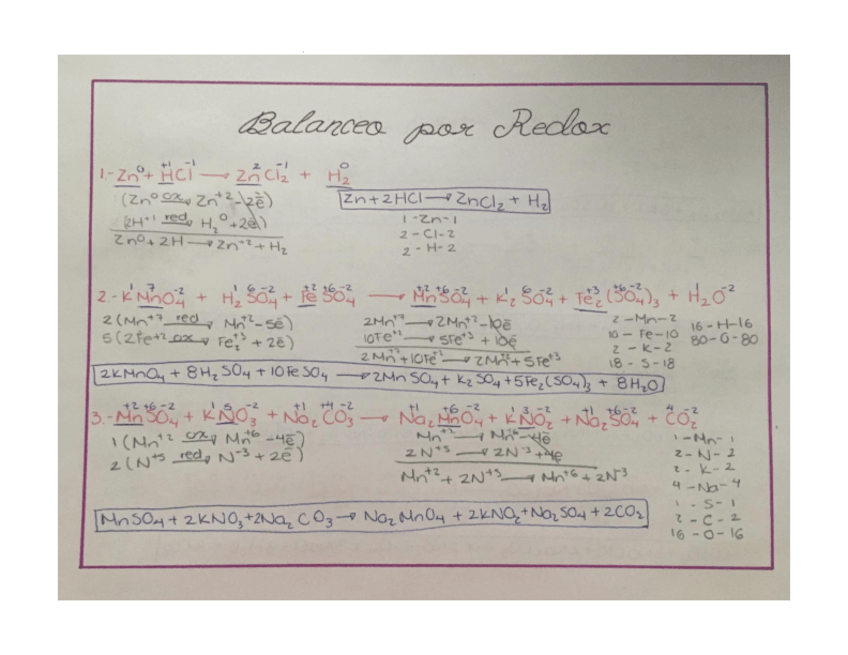 Balanceo por Redox
1.- Zn⁰ + H⁺¹Cl⁻¹ → Zn²Cl₂⁻¹ + H₂⁰
(Zn⁰ ox→ Zn⁺² - 2ē)
(2H⁺¹ red→ H₂⁰ + 2ē)
Zn⁰ + 2H → Zn⁺² + H₂
Zn + 2HCl → ZnCl₂ + H₂
1 - Zn - 1
2 - Cl - 2
2 - H - 2
2.- K¹Mn⁷O₄⁻² + H₂¹S⁶O₄⁻² + Fe⁺²S⁺⁶O₄⁻² → Mn⁺²S⁺⁶O₄⁻² + K₂¹S⁶O₄⁻² + Fe₂⁺³(S⁺⁶O₄⁻²)₃ + H₂¹O⁻²
2(Mn⁺⁷ red→ Mn⁺² - 5ē)
5(2Fe⁺² ox→ Fe₂⁺³ + 2ē)
2Mn⁺⁷ → 2Mn⁺² - 10ē
10Fe⁺² → 5Fe⁺³ + 10ē
2Mn⁺⁷ + 10Fe⁺² → 2Mn⁺² + 5Fe⁺³
2 - Mn - 2
10 - Fe - 10
2 - K - 2
18 - S - 18
16 - H - 16
80 - O - 80
2KMnO₄ + 8H₂SO₄ + 10FeSO₄ → 2MnSO₄ + K₂SO₄ + 5Fe₂(SO₄)₃ + 8H₂O
3.- Mn⁺²S⁺⁶O₄⁻² + K¹N⁵O₃⁻² + Na₂⁺¹C⁺⁴O₃⁻² → Na₂⁺¹Mn⁺⁶O₄⁻² + K¹N³O₂⁻² + Na₂⁺¹S⁺⁶O₄⁻² + C⁴O₂⁻²
1(Mn⁺² ox→ Mn⁺⁶ - 4ē)
2(N⁺⁵ red→ N⁻³ + 2ē)
Mn⁺² → Mn⁺⁶ - 4ē
2N⁺⁵ → 2N⁻³ + 4ē
Mn⁺² + 2N⁺⁵ → Mn⁺⁶ + 2N⁻³
1 - Mn - 1
2 - N - 2
2 - K - 2
4 - Na - 4
1 - S - 1
2 - C - 2
16 - O - 16
MnSO₄ + 2KNO₃ + 2Na₂CO₃ → Na₂MnO₄ + 2KNO₂ + Na₂SO₄ + 2CO₂